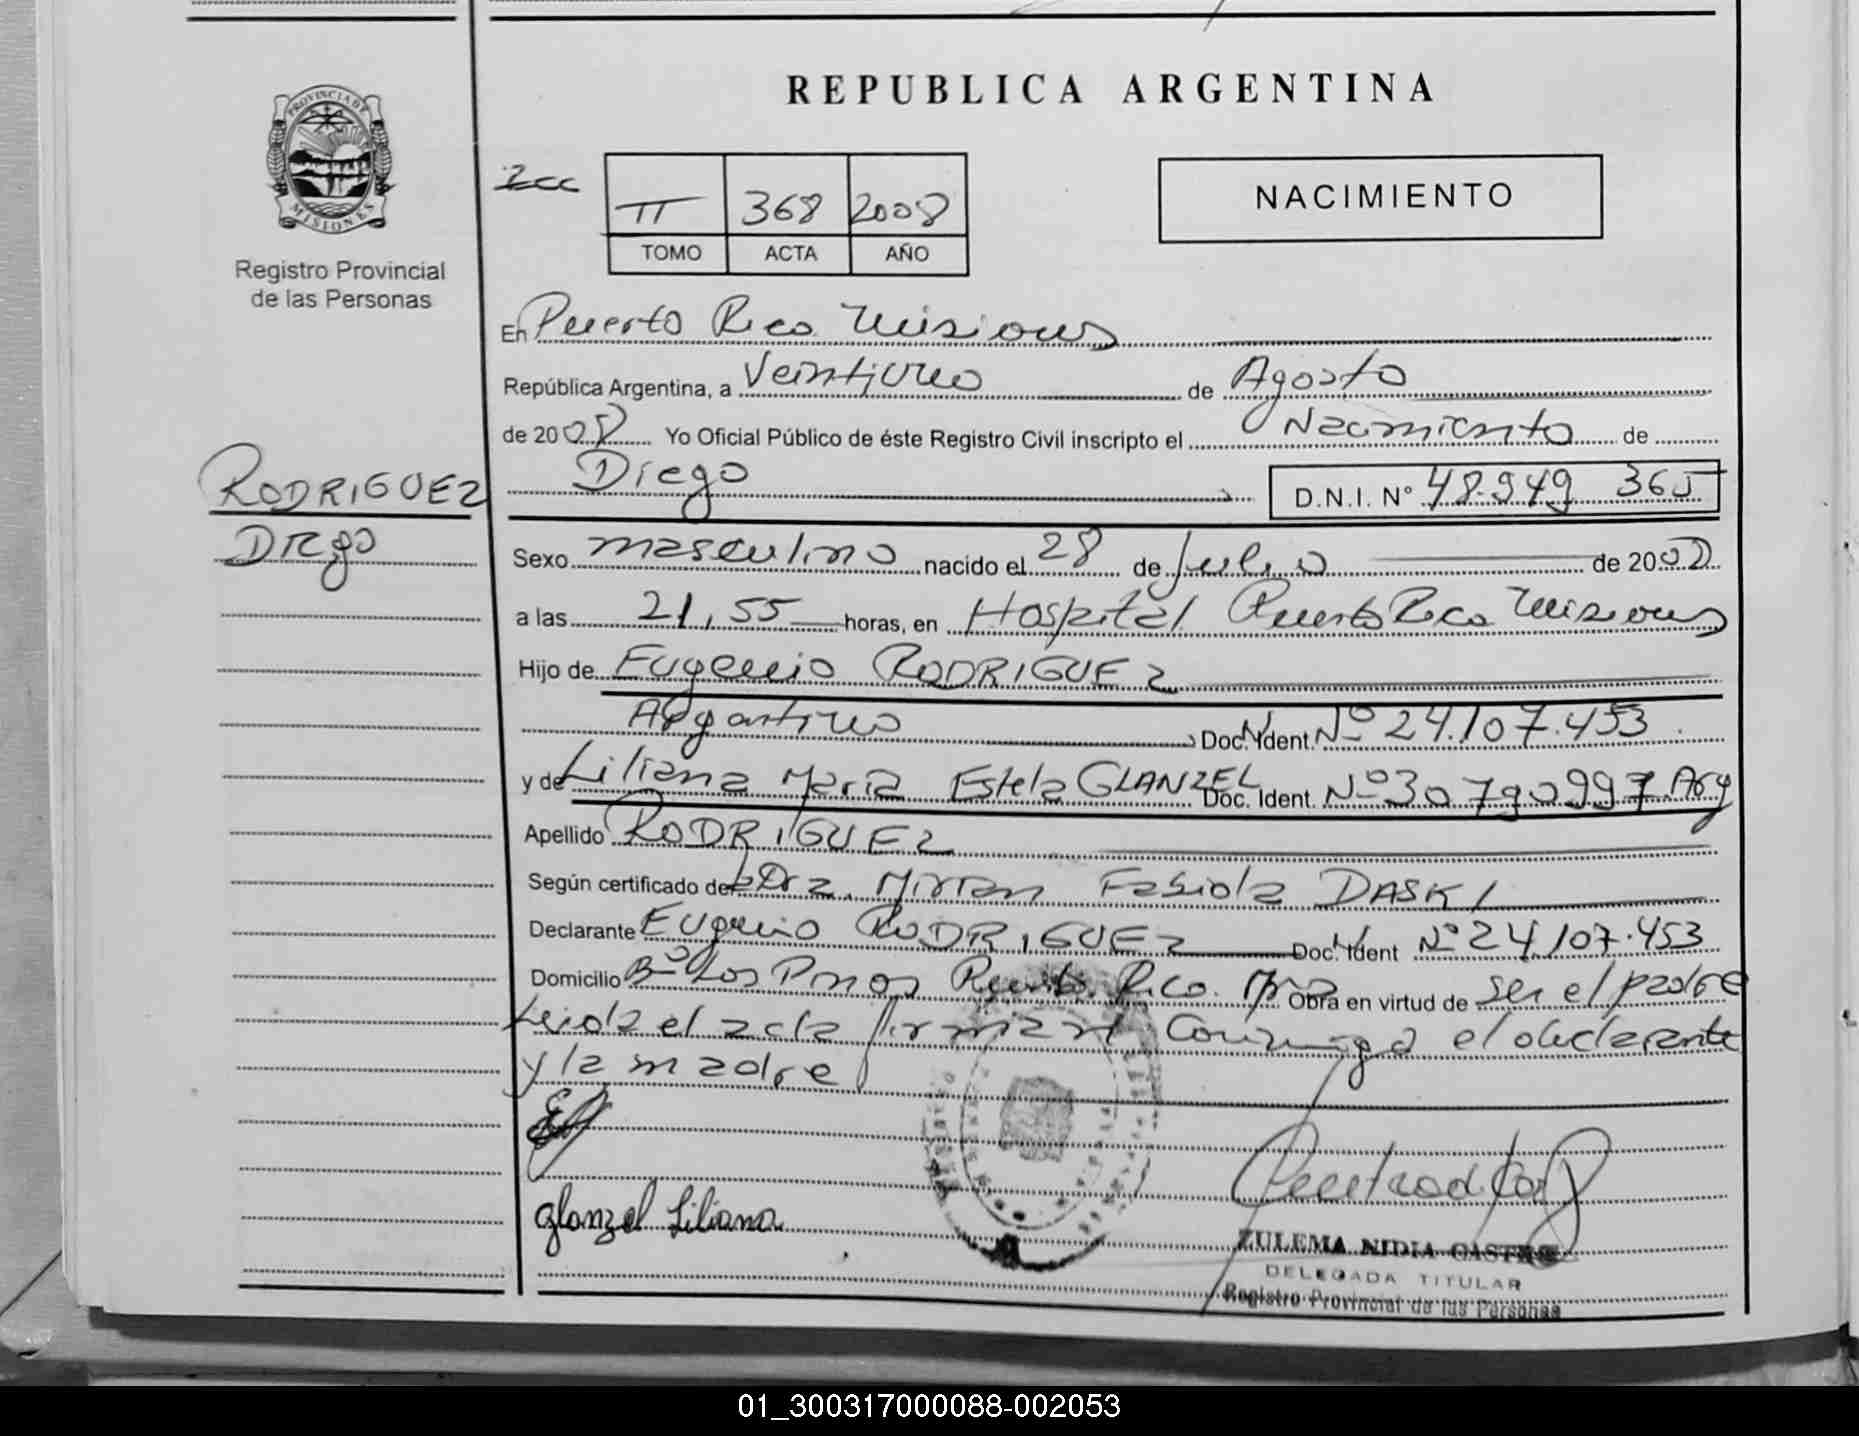 REPUBLICA ARGENTINA
PROVINCIA DE MISIONES
Registro Provincial
de las Personas
II 368 2008
TOMO ACTA AÑO
NACIMIENTO
En Puerto Rico Misiones
República Argentina, a Veintiuno de Agosto
de 2008 Yo Oficial Público de éste Registro Civil inscripto el Nacimiento de
Diego D.N.I. N° 48.949 365
RODRIGUEZ
Diego
Sexo masculino nacido el 28 de Julio de 2008
a las 21,55 horas, en Hospital Puerto Rico Misiones
Hijo de Eugenio RODRIGUEZ
Argentino Doc. Ident. Nº 24.107.453
y de Liliana Maria Estela GLANZEL Doc. Ident. Nº 30790997 Arg
Apellido RODRIGUEZ
Según certificado de la Dra. Mirian Fabiola DASKI
Declarante Eugenio RODRIGUEZ Doc. Ident Nº 24.107.453
Domicilio Bº Los Pinos Puerto Rico. Obra en virtud de ser el padre
Leida el acta firman conmigo el declarante
y la madre
Glanzel Liliana
ZULEMA NIDIA CASTRO
DELEGADA TITULAR
Registro Provincial de las Personas
01_300317000088-002053